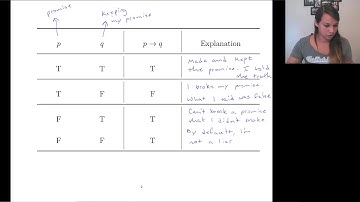 promise
keeping
my promise
p q p → q Explanation
T T T Made and kept
the promise. I told
the truth
T F F I broke my promise.
What I said was false
F T T Can't break a promise
that I didn't make
F F T By default, I'm
not a liar